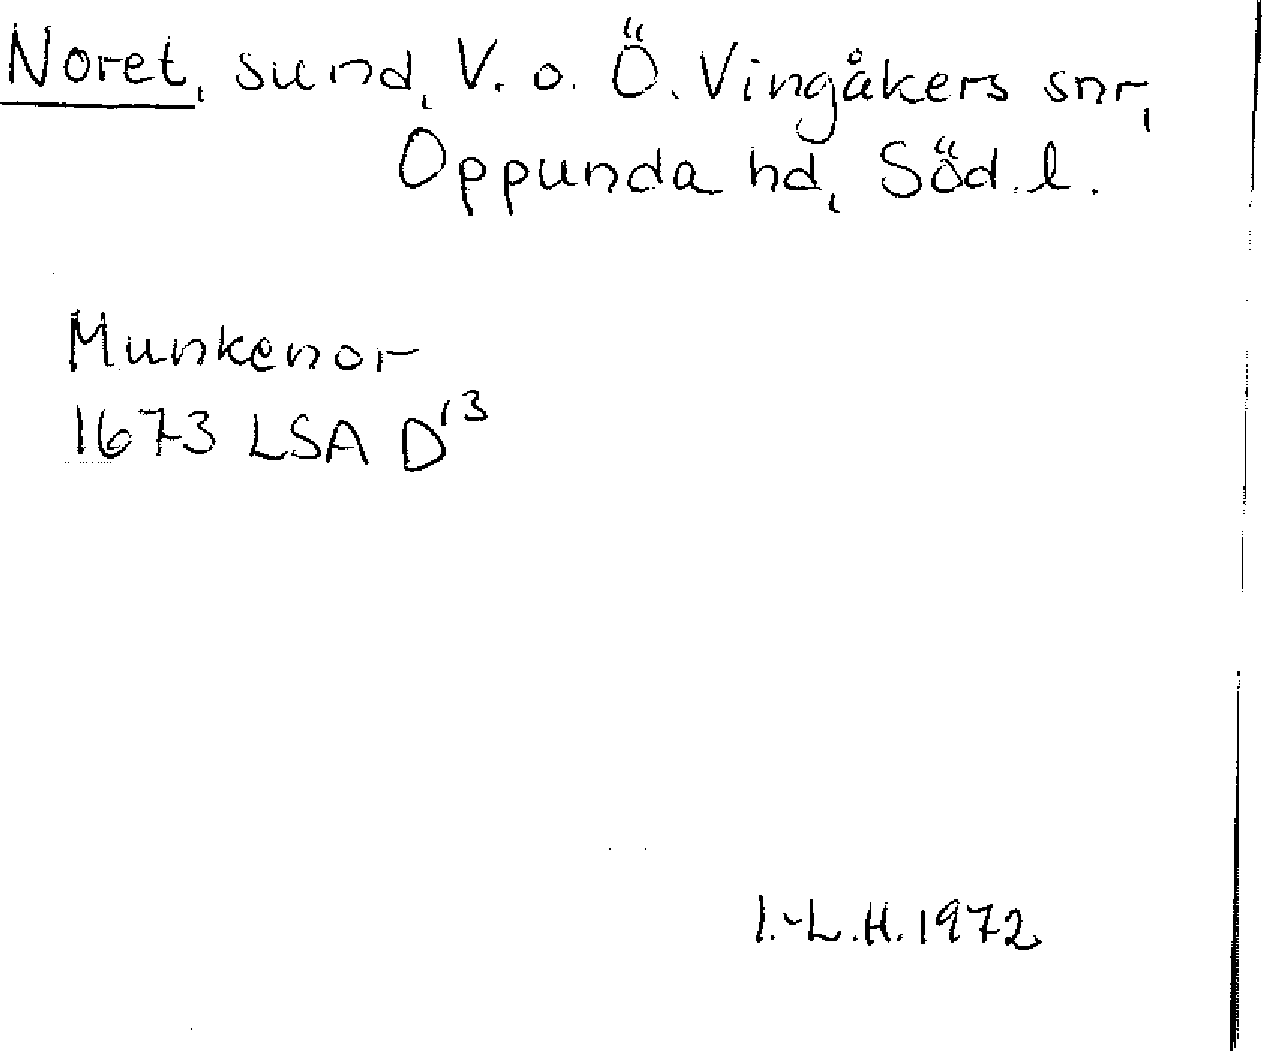 Noret, sund, V. o. Ö. Vingåkers snr,
Oppunda hd, Söd. l.
Munkenor
1673 LSA D'3
I.-L.H. 1972